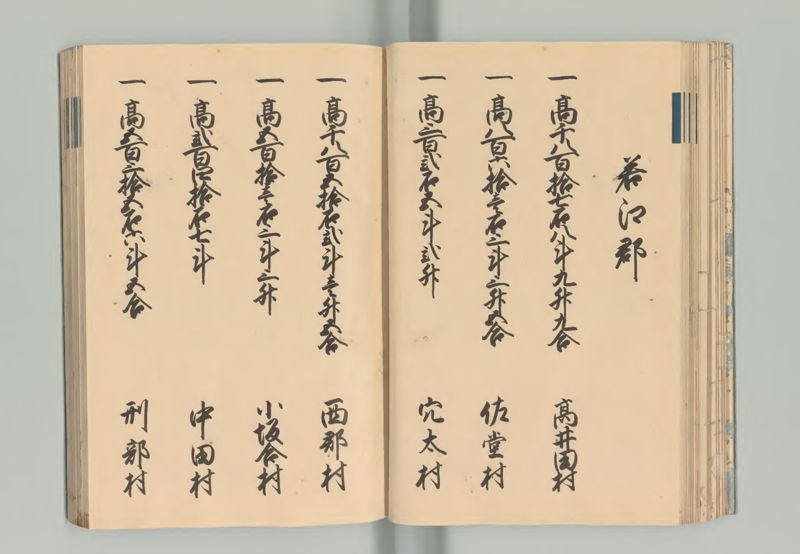 若江郡
一高千八百拾七石八斗九升九合 高井田村
一高八百六拾壱石三斗三升五合 佐堂村
一高三百弐石五斗弐升 穴太村
一高千八百五拾石弐斗壱升五合 西郡村
一高五百拾壱石二斗三升 小坂合村
一高弐百四拾石七斗 中田村
一高五百六拾五石六斗五合 刑部村